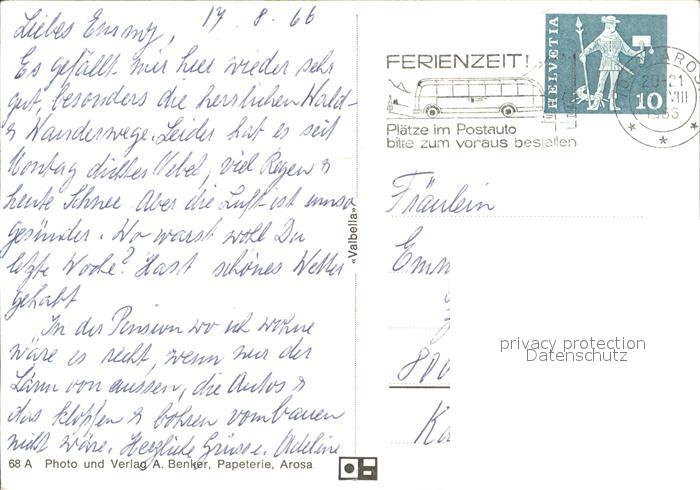 17 . 8 . 66
Liebes Emmy,
Es gefällt mir hier wieder sehr
gut, besonders die herrlichen Wald-
& Wanderwege. Leider hat es seit
Montag dichter Nebel, viel Regen &
heute Schnee. Aber die Luft ist umso
gesünder. Wo warst wohl Du
letzte Woche? Hast schönes Wetter
gehabt
In der Pension wo ich wohne
wäre es recht, wenn nur der
Lärm von aussen, die Autos &
das klopfen & bohren vom bauen
nicht wäre. Herzliche Grüsse. Adeline
68 A Photo und Verlag A. Benker, Papeterie, Arosa
«Valbella»
FERIENZEIT!
Plätze im Postauto
bitte zum voraus bestellen
HELVETIA
10
20-21
VIII
1966
Fräulein
Emm
800
Ka
privacy protection
Datenschutz